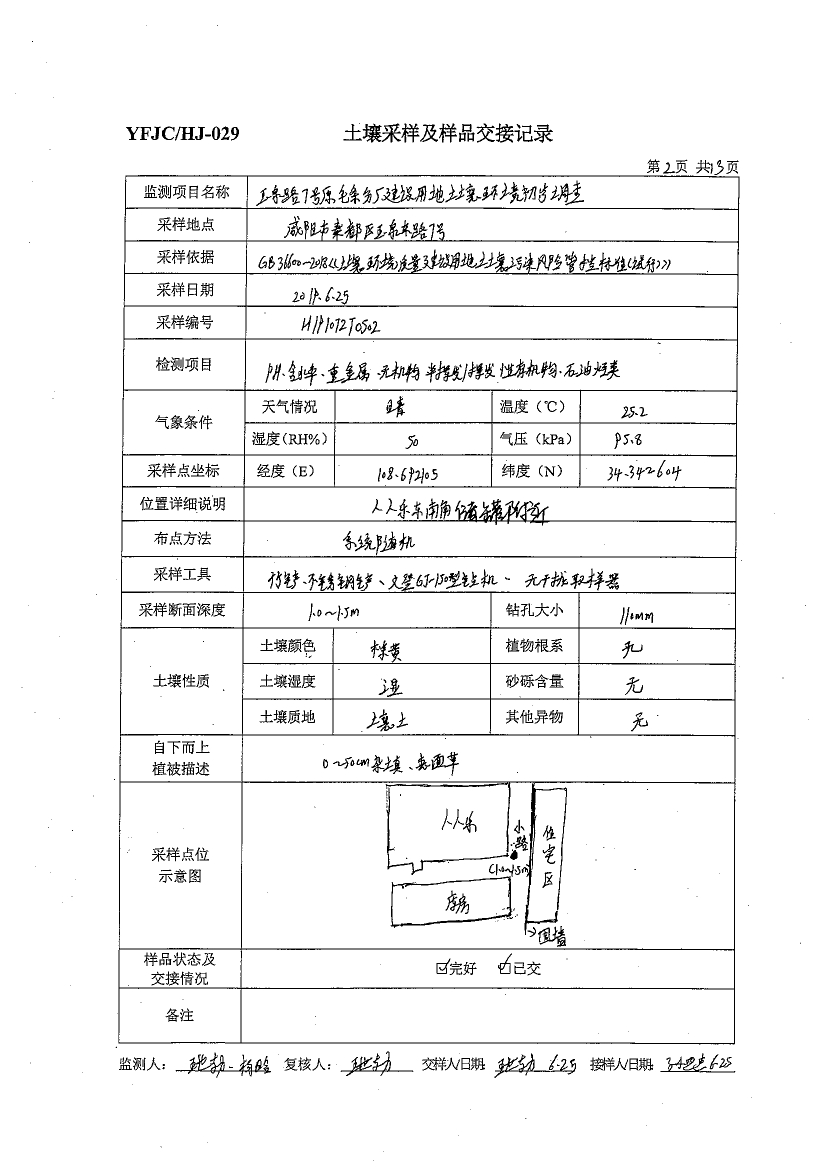 YFJC/HJ-029 土壤采样及样品交接记录
第2页 共13页
监测项目名称 玉泉路7号原毛条分厂建设用地土壤环境初步调查
采样地点 咸阳市秦都区玉泉东路7号
采样依据 GB36600-2018《土壤环境质量建设用地土壤污染风险管控标准(试行)》
采样日期 2019.6.25
采样编号 H191072T0502
检测项目 PH、含水率、重金属、无机物 半挥发/挥发性有机物、石油烃类
气象条件 天气情况 晴 温度(℃) 25.2
湿度(RH%) 50 气压(kPa) 95.8
采样点坐标 经度(E) 108.692105 纬度(N) 34.342604
位置详细说明 人人乐东南角储罐附近
布点方法 系统随机
采样工具 竹铲、不锈钢铲、GJ-150型钻机、无干扰取样器
采样断面深度 1.0~1.5m 钻孔大小 110mm
土壤性质 土壤颜色 棕黄 植物根系 无
土壤湿度 湿 砂砾含量 无
土壤质地 壤土 其他异物 无
自下而上
植被描述 0~50cm杂填、表面草
采样点位
示意图
人人乐
小路
住宅区
(1.0~1.5m)
库房
围墙
样品状态及
交接情况 ☑完好 ☑已交
备注
监测人: 复核人: 交样人/日期: 6.25 接样人/日期: 6.25